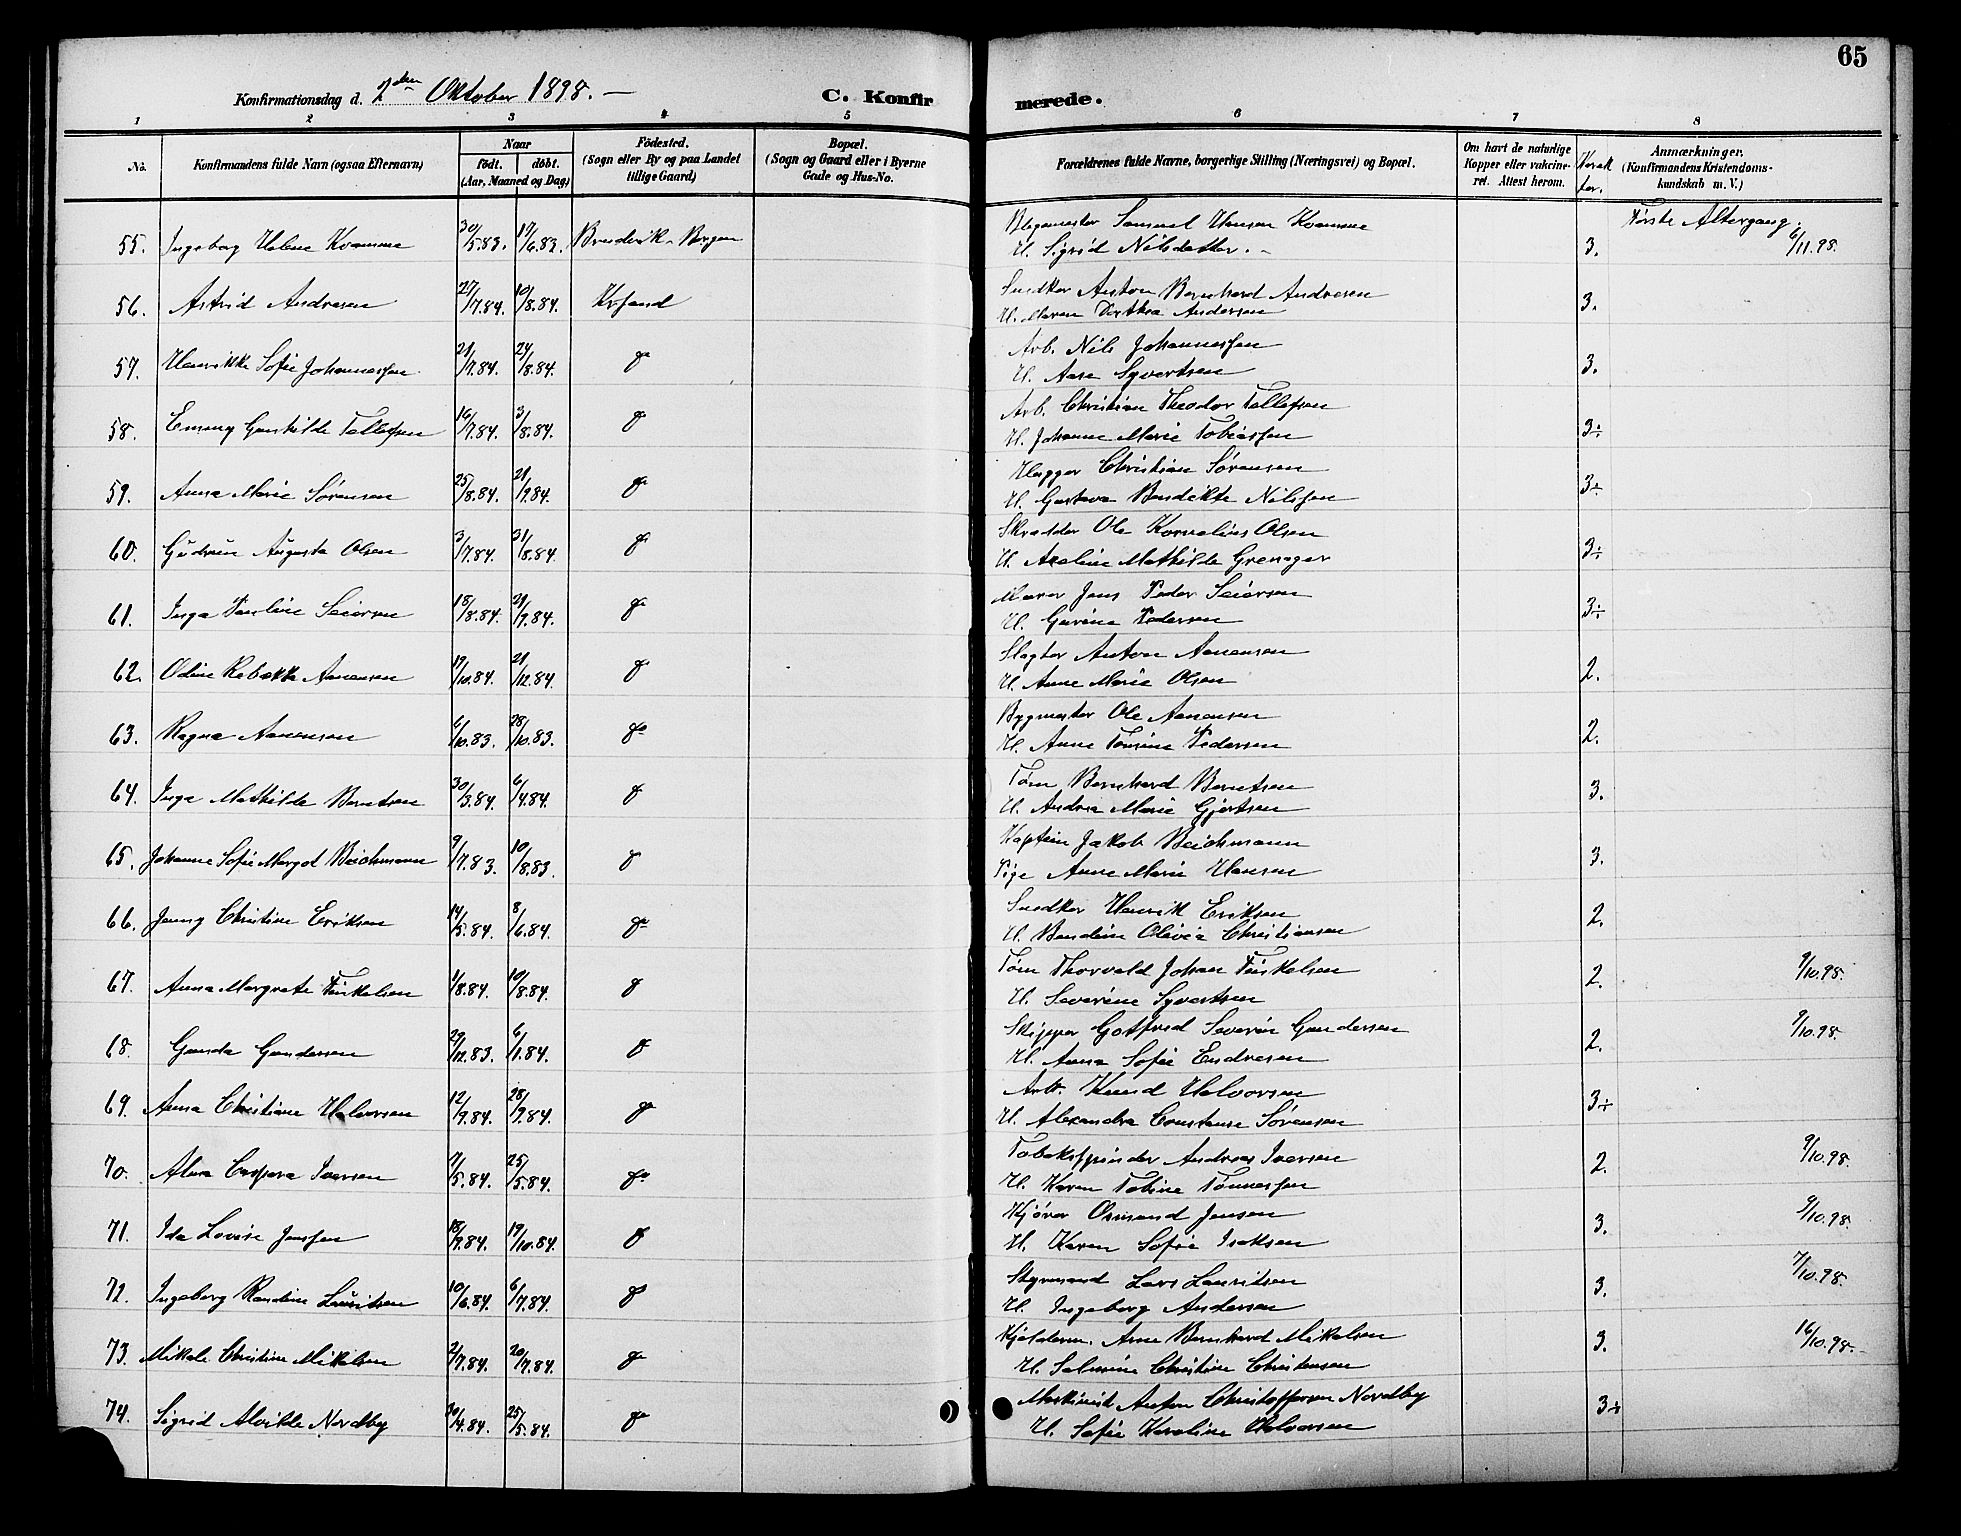 65
Konfirmationsdag d. 2den Oktober 1898. — C. Konfirmerede.
1 2 3 4 5 6 7 8
No. Konfirmandens fulde Navn (ogsaa Efternavn) Naar födt. döbt. (Aar, Maaned og Dag) Födested. (Sogn eller By og paa Landet tillige Gaard) Bopæl. (Sogn og Gaard eller i Byerne Gade og Hus-No. Forældrenes fulde Navne, borgerlige Stilling (Næringsvei) og Bopæl. Om havt de naturlige Kopper eller vakcineret. Attest herom. Karakter. Anmærkninger. (Konfirmandens Kristendomskundskab m. V.)
Første Altergang.
55. Ingeborg Helene Kvamme 30/5.83. 17/6.83. Samuel Hansen Kvamme
H. Sigrid Nilsdatter. 3. 6/11.98.
56. Astrid Andresen 27/7.84. 10/8.84. Krsand Snedker Anton Bernhard Andresen
H. Maren Dorthea Andersen 3.
57. Henrikke Sofie Johannessen 21/7.84. 24/8.84. do Arb. Nils Johannessen
H. Aase Syvertsen 3.
58. Emmy Gunhilde Tellefsen 16/7.84. 3/8.84. do Arb. Christian Theodor Tellefsen
H. Johanne Marie Tobiassen 3÷
59. Anna Marie Sørensen 25/8.84. 21/9.84. do Christian Sørensen
H. Gustava Bendikte Nilssen 3÷
60. Gudrun Augusta Olsen 3/7.84. 31/8.84. do Skrædder Ole Kornelius Olsen
H. Axeline Mathilde Grenager 3÷
61. Inga Pauline Seiersen 18/8.84. 21/9.84. do Murer Jens Peder Seiersen
H. Gurine Pedersen 3÷
62. Odine Rebekka Aanensen 19/10.84. 21/12.84. do Slagter Anton Aanensen
H. Anne Marie Olsen 2.
63. Ragna Aanensen 6/10.83. 28/10.83. do Bygmester Ole Aanensen
H. Anne Tomine Pedersen 2.
64. Inga Mathilde Berntsen 30/3.84. 6/4.84. do Tøm Bernhard Berntsen
H. Andrea Marie Gjertsen 3.
65. Johanne Sofie Margot Beichmann 9/7.83. 10/8.83. do Kaptein Jakob Beichmann
Pige Anne Marie Hansen 3.
66. Jenny Christine Eriksen 14/5.84. 8/6.84. do Snedker Henrik Eriksen
H. Bendine Olivia Christiansen 2.
67. Anna Margrete Terkelsen 1/8.84. 10/8.84. do Tøm Thorvald Johan Terkelsen
H. Severine Syvertsen 2. 9/10.98.
68. Gunda Gundersen 29/12.83. 6/1.84. do Skipper Gotfred Severin Gundersen
H. Anna Sofie Endresen 2. 9/10.98.
69. Anna Christiane Halvorsen 12/9.84. 28/9.84. do Arb. Knud Halvorsen
H. Alexandra Constanse Sørensen 3÷
70. Alma Caspara Iversen 7/5.84. 25/5.84. do Tobakspinder Andreas Iversen
H. Karen Tobine Tønnessen 2. 9/10.98.
71. Ida Lovise Jenssen 18/9.84. 19/10.84. do Kjører Osmund Jensen
H. Karen Sofie Isaksen 3. 9/10.98.
72. Ingeborg Randine Lauritsen 10/6.84. 6/7.84. do Styrmand Lars Lauritsen
H. Ingeborg Andersen 3. 7/10.98.
73. Mikale Christine Mikalsen 2/7.84. 20/7.84. do Arne Bernhard Mikalsen
H. Salmine Christine Christensen 3. 16/10.98.
74. Sigrid Alvilde Nordby 30/4.84. 25/5.84. do Maskinist Anton Christoffersen Nordby
H. Sofie Karoline Halvorsen 3÷